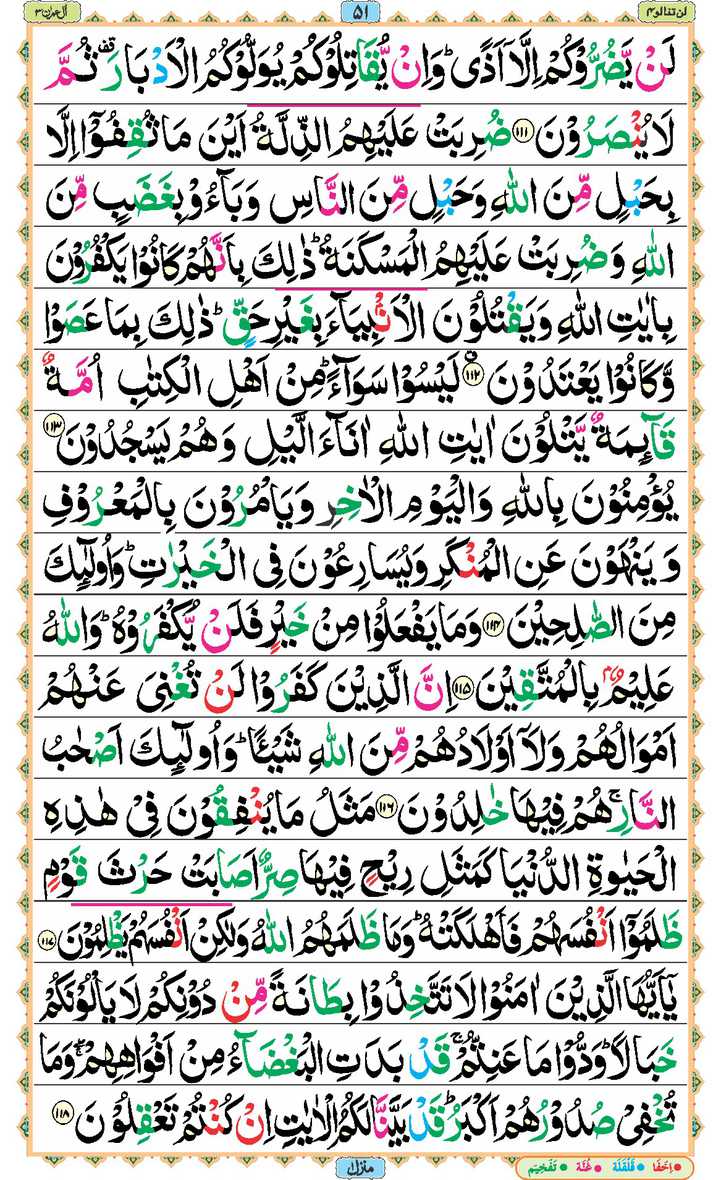 لن تنالوا ۴
۵۱
اٰل عمرٰن ۳
لَنۡ يَّضُرُّوۡكُمۡ اِلَّاۤ اَذًى‌ؕ وَاِنۡ يُّقَاتِلُوۡكُمۡ يُوَلُّوۡكُمُ الۡاَدۡبَارَ ثُمَّ
لَا يُنۡصَرُوۡنَ ﴿۱۱۱﴾ ضُرِبَتۡ عَلَيۡهِمُ الذِّلَّةُ اَيۡنَ مَا ثُقِفُوۡۤا اِلَّا
بِحَبۡلٍ مِّنَ اللّٰهِ وَحَبۡلٍ مِّنَ النَّاسِ وَبَآءُوۡ بِغَضَبٍ مِّنَ
اللّٰهِ وَضُرِبَتۡ عَلَيۡهِمُ الۡمَسۡكَنَةُ ؕ ذٰلِكَ بِاَنَّهُمۡ كَانُوۡا يَكۡفُرُوۡنَ
بِاٰيٰتِ اللّٰهِ وَيَقۡتُلُوۡنَ الۡاَنۡۢبِيَآءَ بِغَيۡرِ حَقٍّ‌ؕ ذٰلِكَ بِمَا عَصَوۡا
وَّكَانُوۡا يَعۡتَدُوۡنَ ﴿۱۱۲﴾ لَيۡسُوۡا سَوَآءً ؕ مِنۡ اَهۡلِ الۡكِتٰبِ اُمَّةٌ
قَآئِمَةٌ يَّتۡلُوۡنَ اٰيٰتِ اللّٰهِ اٰنَآءَ الَّيۡلِ وَهُمۡ يَسۡجُدُوۡنَ ﴿۱۱۳﴾
يُؤۡمِنُوۡنَ بِاللّٰهِ وَالۡيَوۡمِ الۡاٰخِرِ وَيَاۡمُرُوۡنَ بِالۡمَعۡرُوۡفِ
وَيَنۡهَوۡنَ عَنِ الۡمُنۡكَرِ وَيُسَارِعُوۡنَ فِى الۡخَيۡرٰتِ ؕ وَاُولٰٓئِكَ
مِنَ الصّٰلِحِيۡنَ ﴿۱۱۴﴾ وَمَا يَفۡعَلُوۡا مِنۡ خَيۡرٍ فَلَنۡ يُّكۡفَرُوۡهُ‌ ؕ وَاللّٰهُ
عَلِيۡمٌۢ بِالۡمُتَّقِيۡنَ ﴿۱۱۵﴾ اِنَّ الَّذِيۡنَ كَفَرُوۡا لَنۡ تُغۡنِىَ عَنۡهُمۡ
اَمۡوَالُهُمۡ وَلَاۤ اَوۡلَادُهُمۡ مِّنَ اللّٰهِ شَيۡـئًا ؕ وَاُولٰٓئِكَ اَصۡحٰبُ
النَّارِ‌ۚ هُمۡ فِيۡهَا خٰلِدُوۡنَ ﴿۱۱۶﴾ مَثَلُ مَا يُنۡفِقُوۡنَ فِىۡ هٰذِهِ
الۡحَيٰوةِ الدُّنۡيَا كَمَثَلِ رِيۡحٍ فِيۡهَا صِرٌّ اَصَابَتۡ حَرۡثَ قَوۡمٍ
ظَلَمُوۡۤا اَنۡفُسَهُمۡ فَاَهۡلَكَتۡهُ‌ ؕ وَمَا ظَلَمَهُمُ اللّٰهُ وَلٰكِنۡ اَنۡفُسَهُمۡ يَظۡلِمُوۡنَ ﴿۱۱۷﴾
يٰۤاَيُّهَا الَّذِيۡنَ اٰمَنُوۡا لَا تَتَّخِذُوۡا بِطَانَةً مِّنۡ دُوۡنِكُمۡ لَا يَاۡلُوۡنَكُمۡ
خَبَالًا ؕ وَدُّوۡا مَا عَنِتُّمۡ‌ۚ قَدۡ بَدَتِ الۡبَغۡضَآءُ مِنۡ اَفۡوَاهِهِمۡ ۖۚ وَمَا
تُخۡفِىۡ صُدُوۡرُهُمۡ اَكۡبَرُ‌ؕ قَدۡ بَيَّنَّا لَكُمُ الۡاٰيٰتِ‌ اِنۡ كُنۡتُمۡ تَعۡقِلُوۡنَ ﴿۱۱۸﴾
منزل ۱
اِخفَا قَلقَلَہ غُنَّہ تَفخِیم